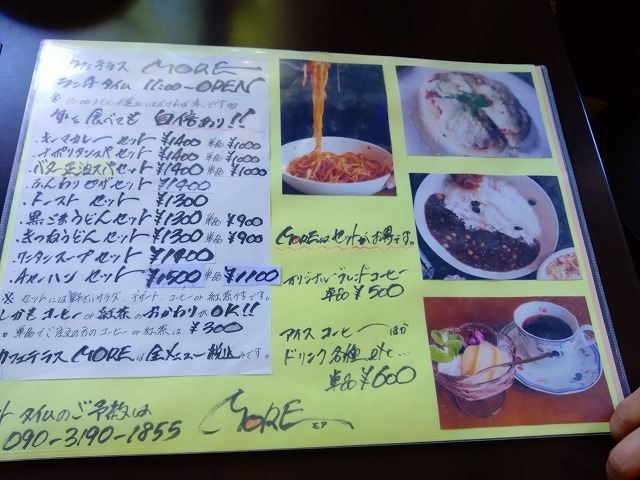 カフェテラス MORE
ランチタイム 11:00〜OPEN
何を食べても自信あり!!
・キーマカレーセット ¥1400 単品 ¥1000
・ナポリタンスパセット ¥1400 単品 ¥1000
・バター醤油スパセット ¥1400 単品 ¥1000
・ふんわりピザセット ¥1400
・トーストセット ¥1300
・黒ごまうどんセット ¥1300 単品 ¥900
・きつねうどんセット ¥1300 単品 ¥900
・ワンタンスープセット ¥1400
・Aセーハンセット ¥1500 単品 ¥1100
※セットには野菜サラダ、デザート、コーヒーor紅茶付です。
しかもコーヒーor紅茶のおかわりがOK!!
。単品でご注文の方のコーヒーor紅茶は ¥300
カフェテラス MOREは全メニュー税込みです。
タイムのご予約は
090-3190-1855
MORE
MOREはセットがお得です。
オリジナルブレンドコーヒー
単品 ¥500
アイスコーヒーほか
ドリンク各種 etc...
単品 ¥600